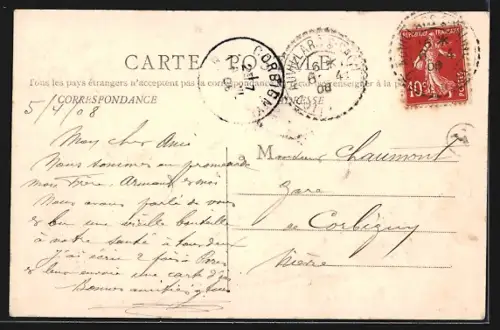 CARTE POSTALE
Tous les pays étrangers n'acceptent pas la correspondance
CORRESPONDANCE
CORBIGNY
6 4
08
REPUBLIQUE FRANÇAISE
POSTES
10c
5/4/08
Mon cher Ami
Nous sommes en promenade
mon Frère Armand & moi
Nous avons parlé de vous
& bu une vieille bouteille
à votre santé à tous deux
2 fois à
& leur envoie une carte
Bonnes amitiés
Monsieur Chaumont
Gare
de Corbigny
Nièvre